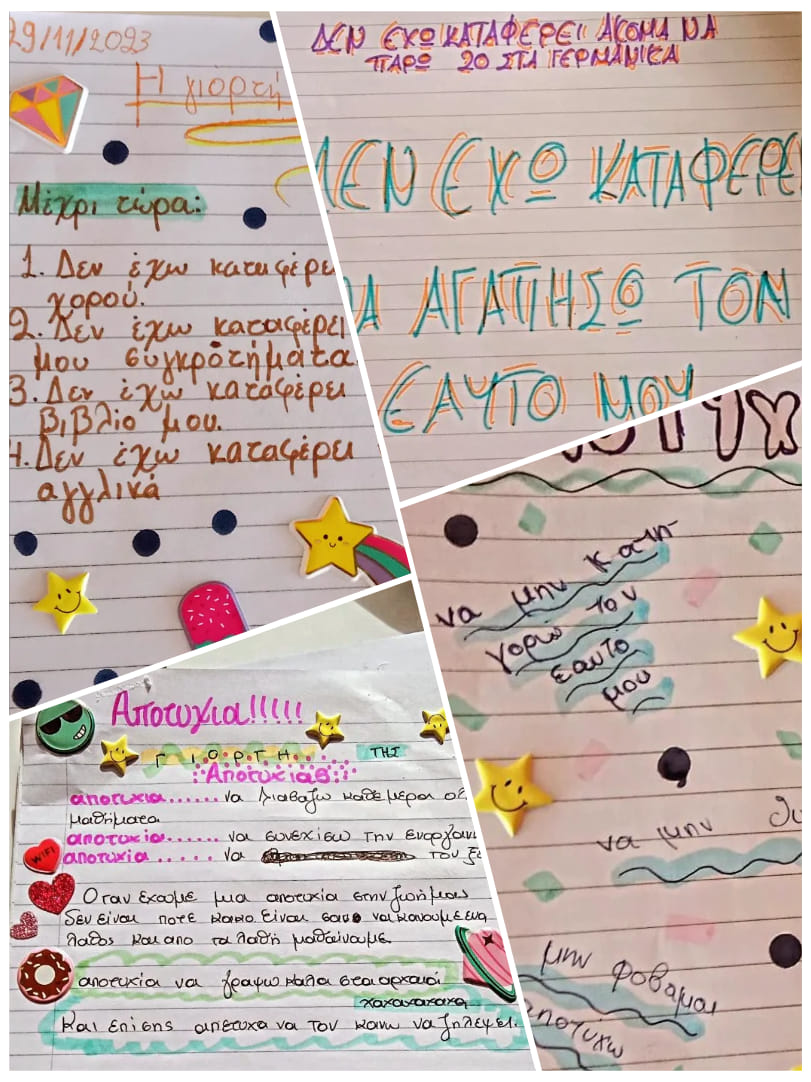 29/11/2023
Η γιορτή
Μέχρι τώρα:
1. Δεν έχω καταφέρει
χορού.
2. Δεν έχω καταφέρει
μου συγκροτήματα
3. Δεν έχω καταφέρει
βιβλίο μου.
4. Δεν έχω καταφέρει
αγγλικά
ΔΕΝ ΕΧΩ ΚΑΤΑΦΕΡΕΙ ΑΚΟΜΑ ΝΑ
ΠΑΡΩ 20 ΣΤΑ ΓΕΡΜΑΝΙΚΑ
ΔΕΝ ΕΧΩ ΚΑΤΑΦΕΡΕΙ
ΝΑ ΑΓΑΠΗΣΩ ΤΟΝ
ΕΑΥΤΟ ΜΟΥ
να μην κατη-
γορώ τον
εαυτο
μου
να μην
μην φοβαμαι
αποτυχω
Αποτυχια!!!!!
ΓΙΟΡΤΗ ΤΗΣ
Αποτυχιας
αποτυχια...... να διαβαζω καθεμερα
μαθήματα
αποτυχια...... να συνεχισω την
αποτυχια ..... να του
WIFI
Οταν εχουμε μια αποτυχια στην ζωή μας
δεν ειναι ποτε κακο. Ειναι σαν να κανουμε ενα
λαθος και απο τα λαθη μαθαινουμε
αποτυχια να γραψω καλα στα αρχαια
χαχαχαχαχα
Και επισης απετυχα να τον κανω να ζηλεψει.